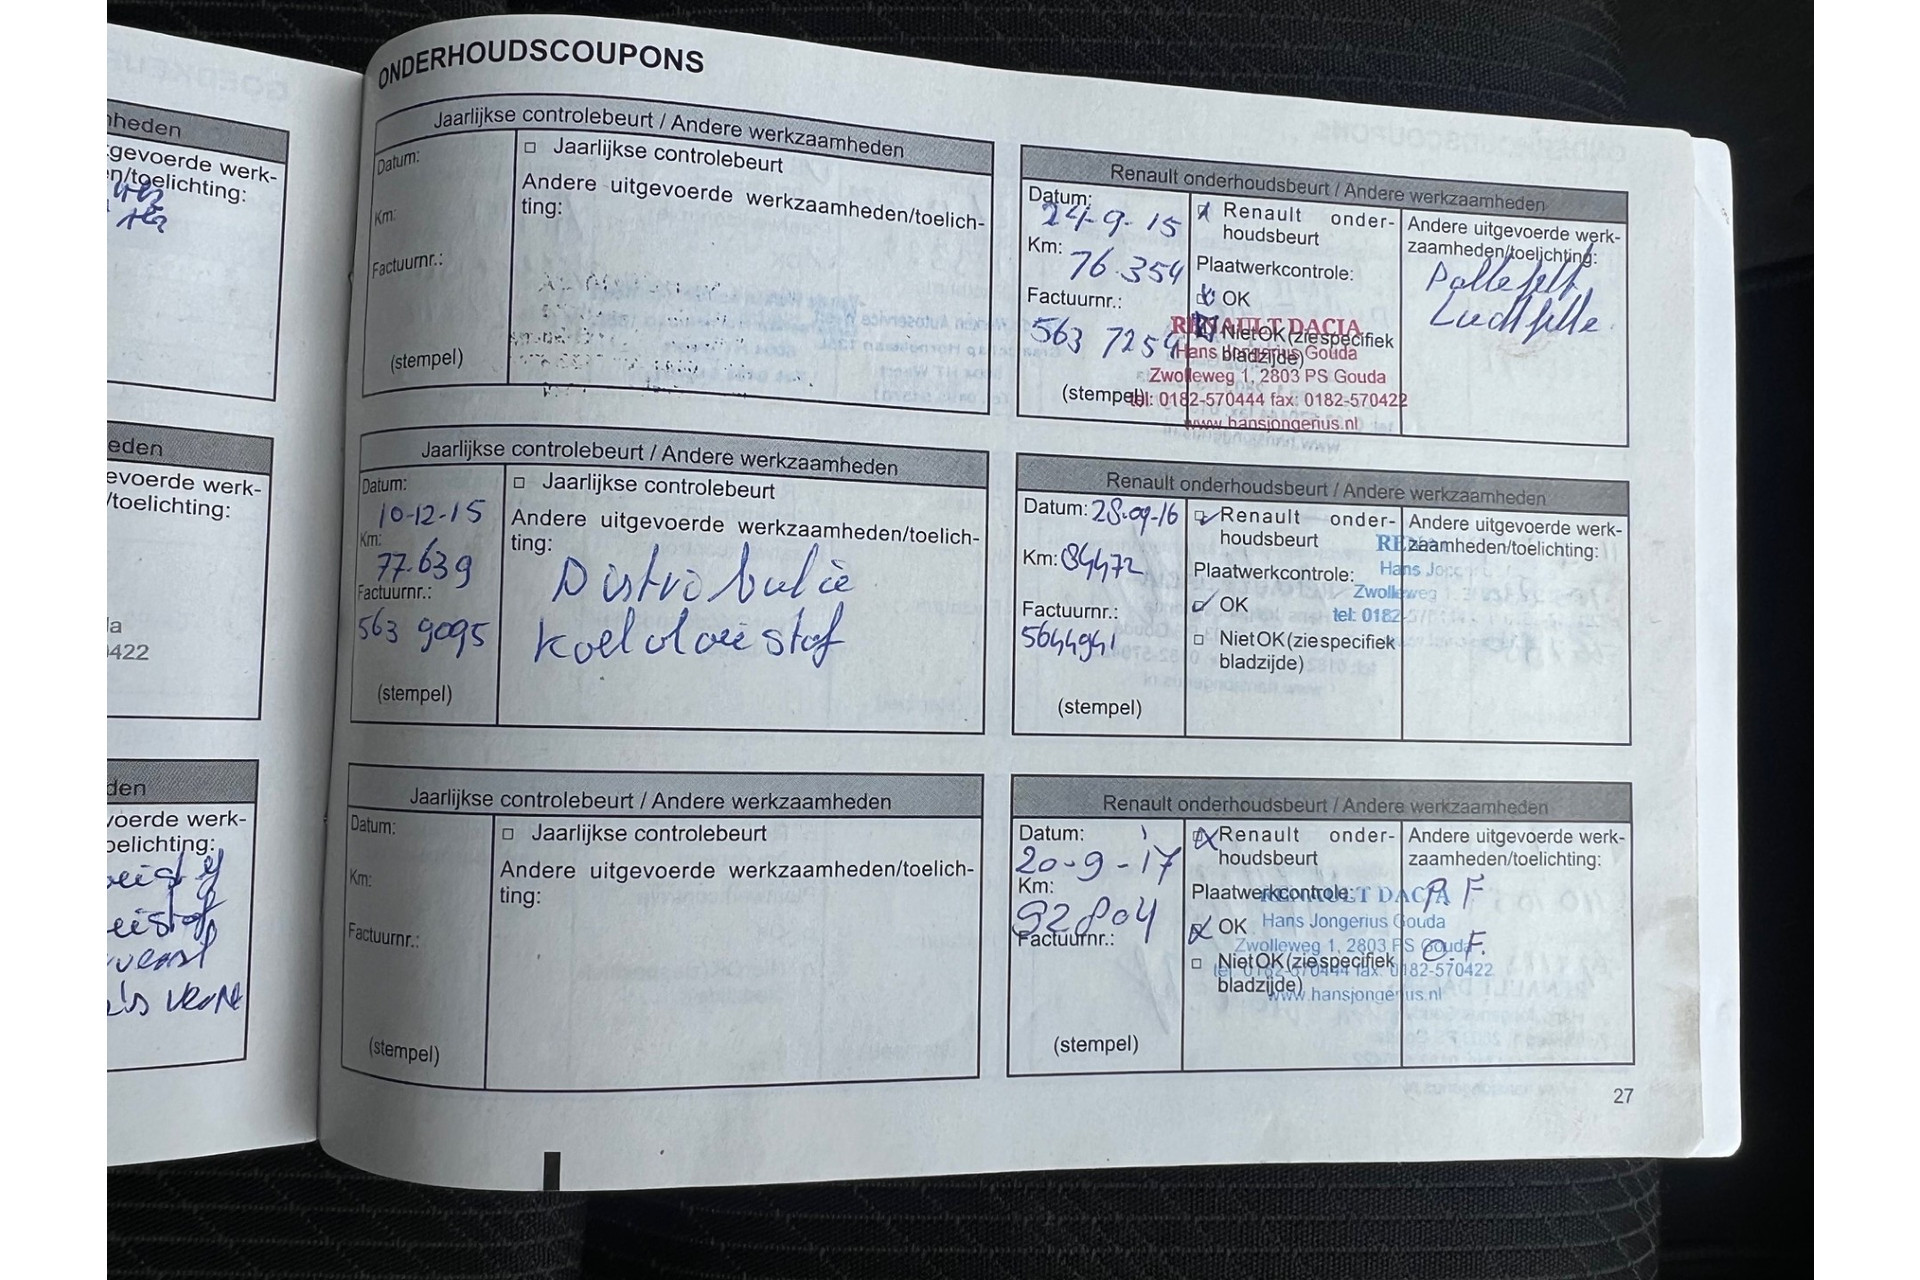 ONDERHOUDSCOUPONS
Jaarlijkse controlebeurt / Andere werkzaamheden
Datum:
Km:
Factuurnr.:
(stempel)
□ Jaarlijkse controlebeurt
Andere uitgevoerde werkzaamheden/toelich-
ting:
Renault onderhoudsbeurt / Andere werkzaamheden
Datum:
24-9-15
Km:
76.354
Factuurnr.:
563 7254
(stempel)
Renault onder-
houdsbeurt
Plaatwerkcontrole:
OK
Niet OK (zie specifiek
bladzijde)
Andere uitgevoerde werk-
zaamheden/toelichting:
RENAULT DACIA
Hans Jongerius Gouda
Zwolleweg 1, 2803 PS Gouda
tel: 0182-570444 fax: 0182-570422
www.hansjongerius.nl
Jaarlijkse controlebeurt / Andere werkzaamheden
Datum:
10-12-15
Km:
77.639
Factuurnr.:
563 9095
(stempel)
□ Jaarlijkse controlebeurt
Andere uitgevoerde werkzaamheden/toelich-
ting:
Distributie
koelvloeistof
Renault onderhoudsbeurt / Andere werkzaamheden
Datum: 28-09-16
Km: 84472
Factuurnr.:
5644941
(stempel)
Renault onder-
houdsbeurt
Plaatwerkcontrole:
OK
□ Niet OK (zie specifiek
bladzijde)
Andere uitgevoerde werk-
zaamheden/toelichting:
Hans
Zwolleweg
tel: 0182
Jaarlijkse controlebeurt / Andere werkzaamheden
Datum:
Km:
Factuurnr.:
(stempel)
□ Jaarlijkse controlebeurt
Andere uitgevoerde werkzaamheden/toelich-
ting:
Renault onderhoudsbeurt / Andere werkzaamheden
Datum:
20-9-17
Km:
92804
Factuurnr.:
(stempel)
Renault onder-
houdsbeurt
Plaatwerkcontrole:
OK
□ Niet OK (zie specifiek
bladzijde)
Andere uitgevoerde werk-
zaamheden/toelichting:
P.F
O.F.
RENAULT DACIA
Hans Jongerius Gouda
Zwolleweg 1, 2803 PS Gouda
tel: 0182-570444 fax: 0182-570422
www.hansjongerius.nl
27
heden
gevoerde werk-
n/toelichting:
eden
evoerde werk-
/toelichting:
la
0422
den
voerde werk-
oelichting: